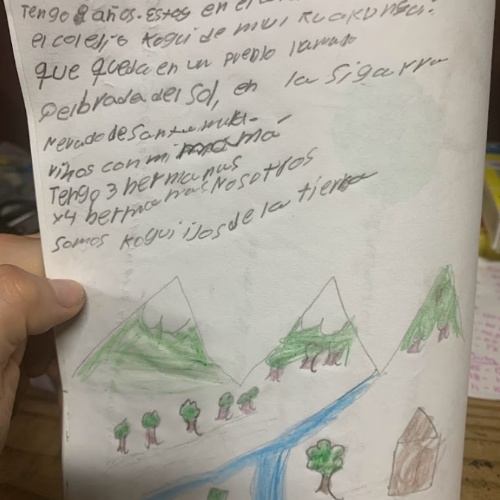 Tengo 8 años. Estos en el
el colejio Kogui de mui Kuakungui.
que queda en un pueblo llamado
Qelbrada del Sol, en la Sigarra
Nevado de Santa
viños con mi mamá
Tengo 3 hermanas
x4 hermanas Nosotros
Somos Kogui ijos de la tierra